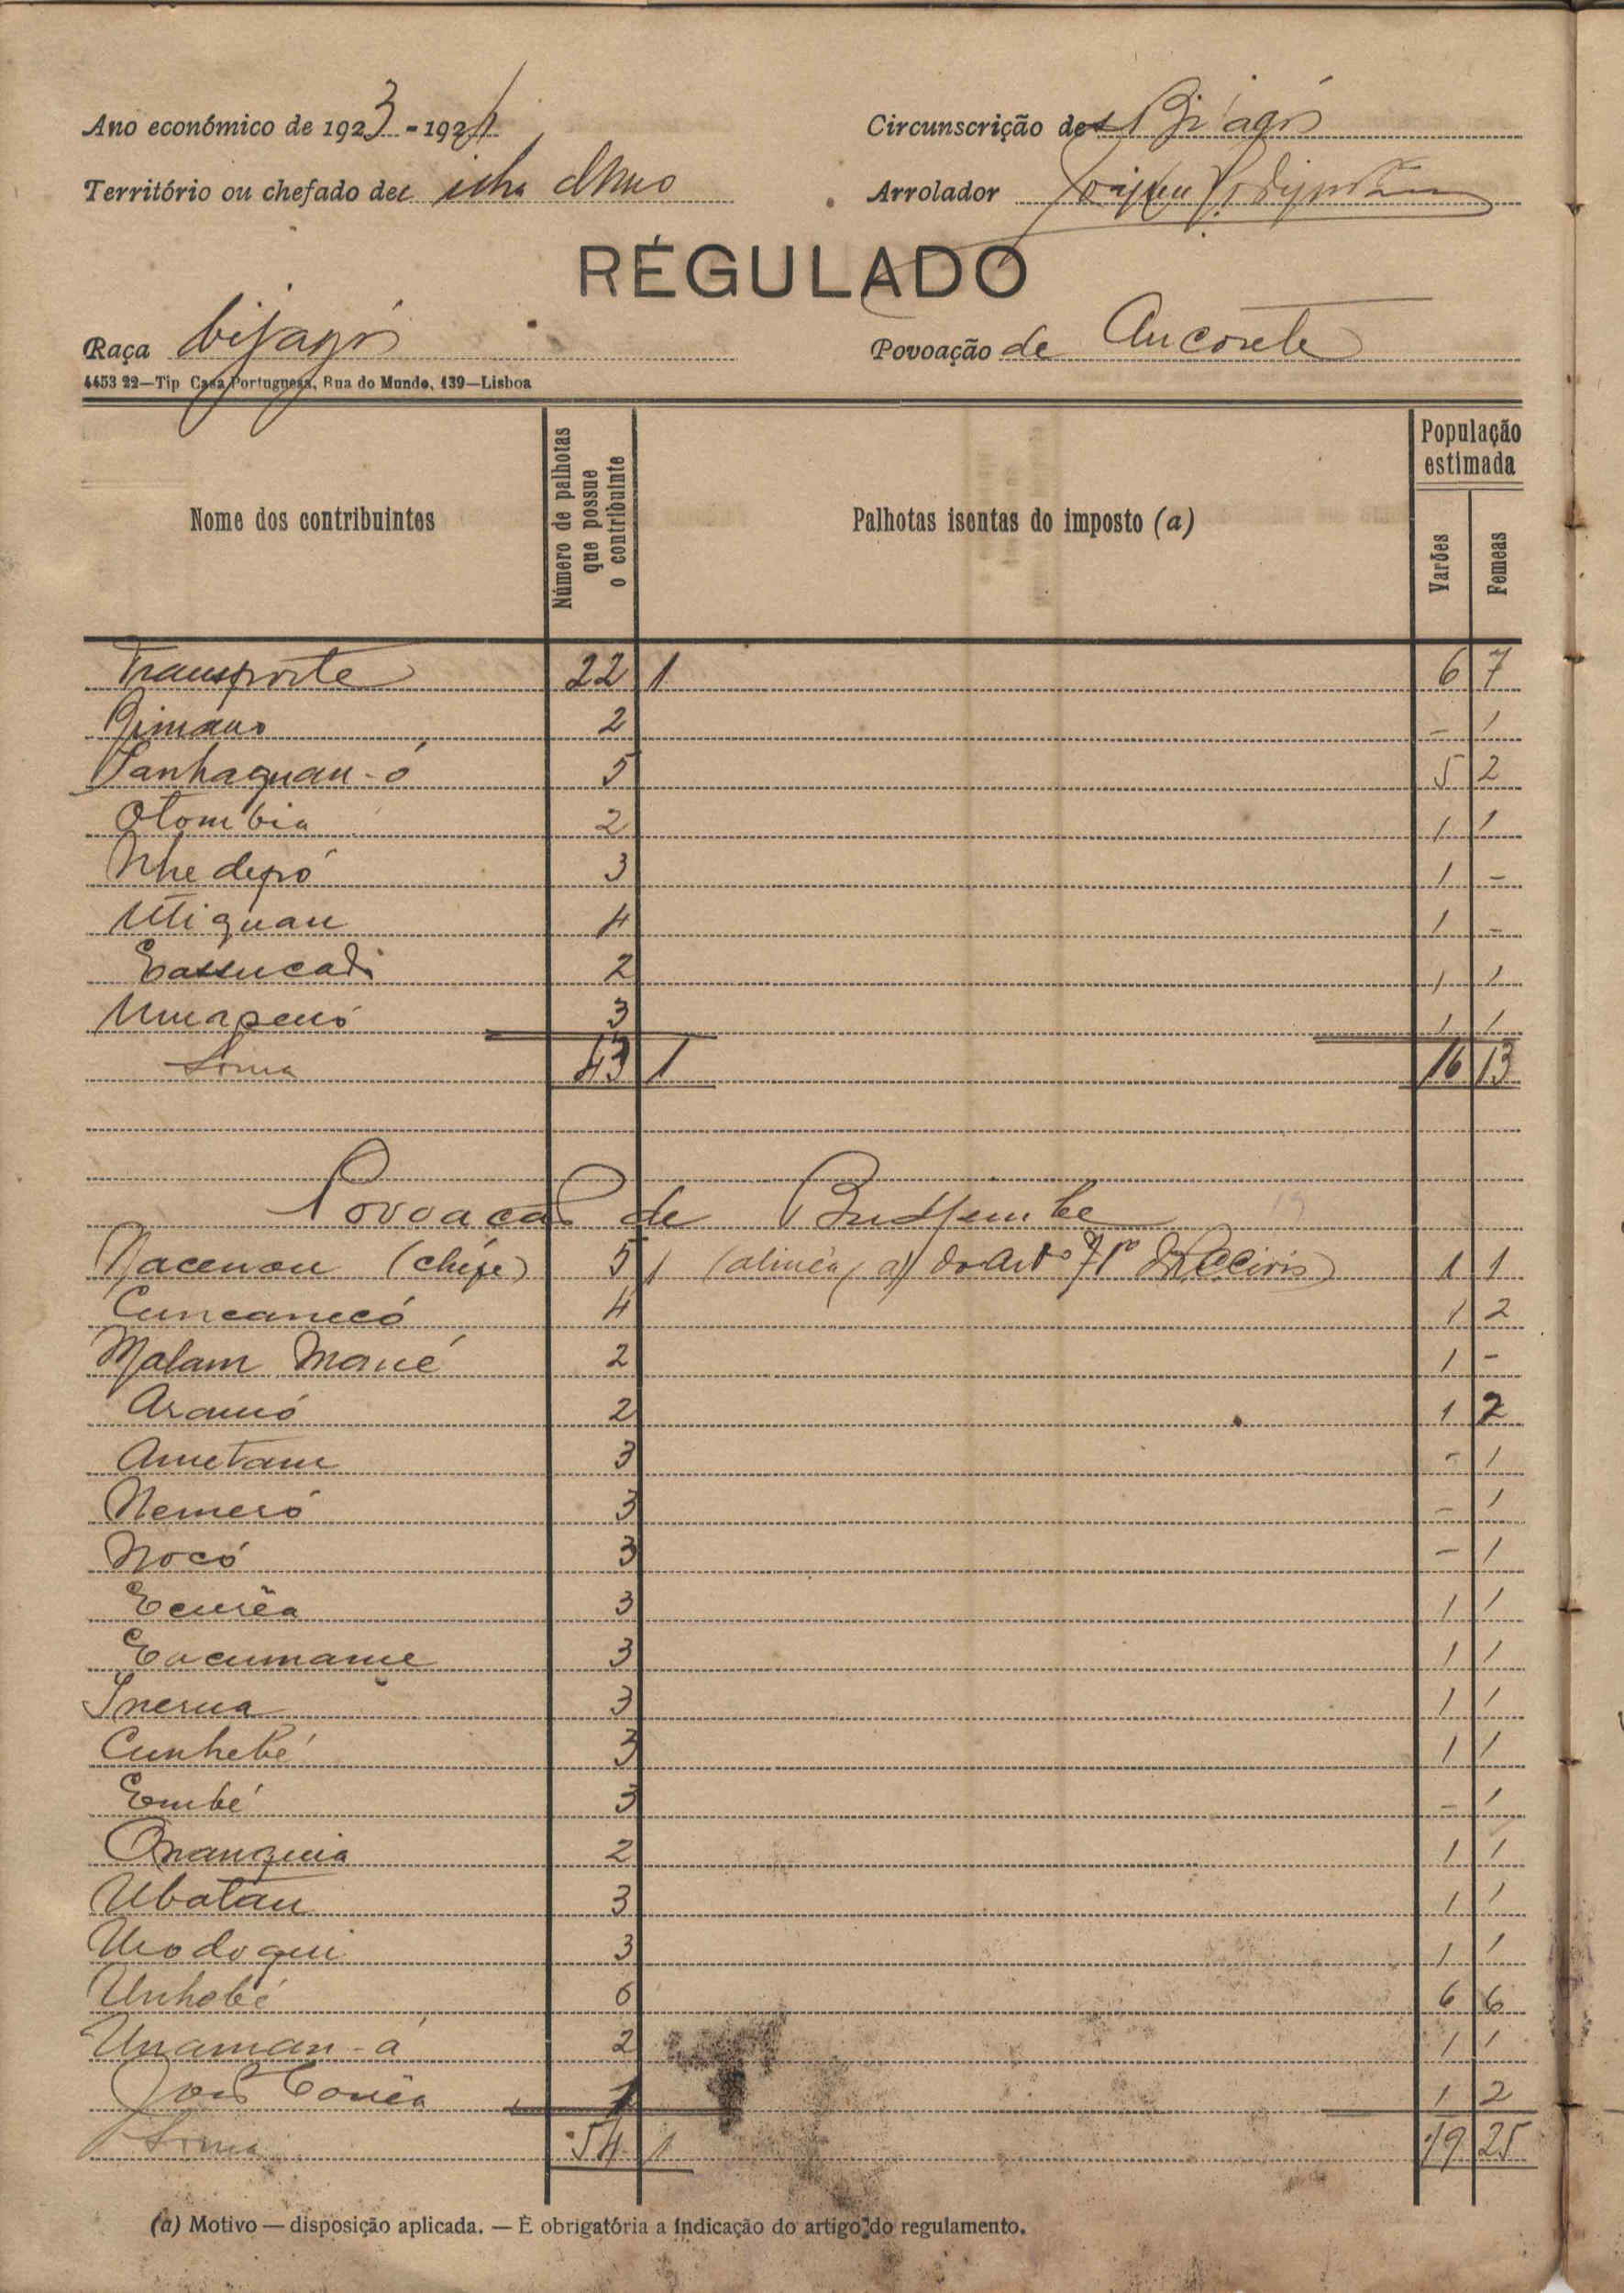 Ano económico de 1923-1924 Circunscrição de Bijagós
Território ou chefado de ilha Uno Arrolador
RÉGULADO
Raça bijagós Povoação de Ancorete
4453 22—Tip Casa Portuguesa, Rua do Mundo, 139—Lisboa
Nome dos contribuintes Número de palhotas que possue o contribuinte Palhotas isentas do imposto (a) População estimada Varões Femeas
Transporte 22 1 6 7
Jimano 2 - 1
Tanhaguan-ó 5 5 2
Otombia 2 1 1
Nhe depó 3 1 -
Utiguan 4 1 -
Eassucadi 2 1 1
Umapenó 3 1 1
Soma 43 1 16 13
Povoacão de
Nacenou (chefe) 5 1 (alinea a) do arto 71º 1 1
Cuncanecó 4 1 2
Malam Mané 2 1 -
Aramó 2 1 2
Ametam 3 - 1
Nemeró 3 - 1
Nocó 3 - 1
Ecurêa 3 1 1
Eacumame 3 1 1
Inerua 3 1 1
Cunhebé 3 1 1
Embé 3 - 1
Onanquia 2 1 1
Ubotan 3 1 1
Urodoqui 3 1 1
Unhobé 6 6 6
Unaman-á 2 1 1
José Corrêa 1 1 2
Soma 54 1 19 25
(a) Motivo — disposição aplicada. — É obrigatória a indicação do artigo do regulamento.